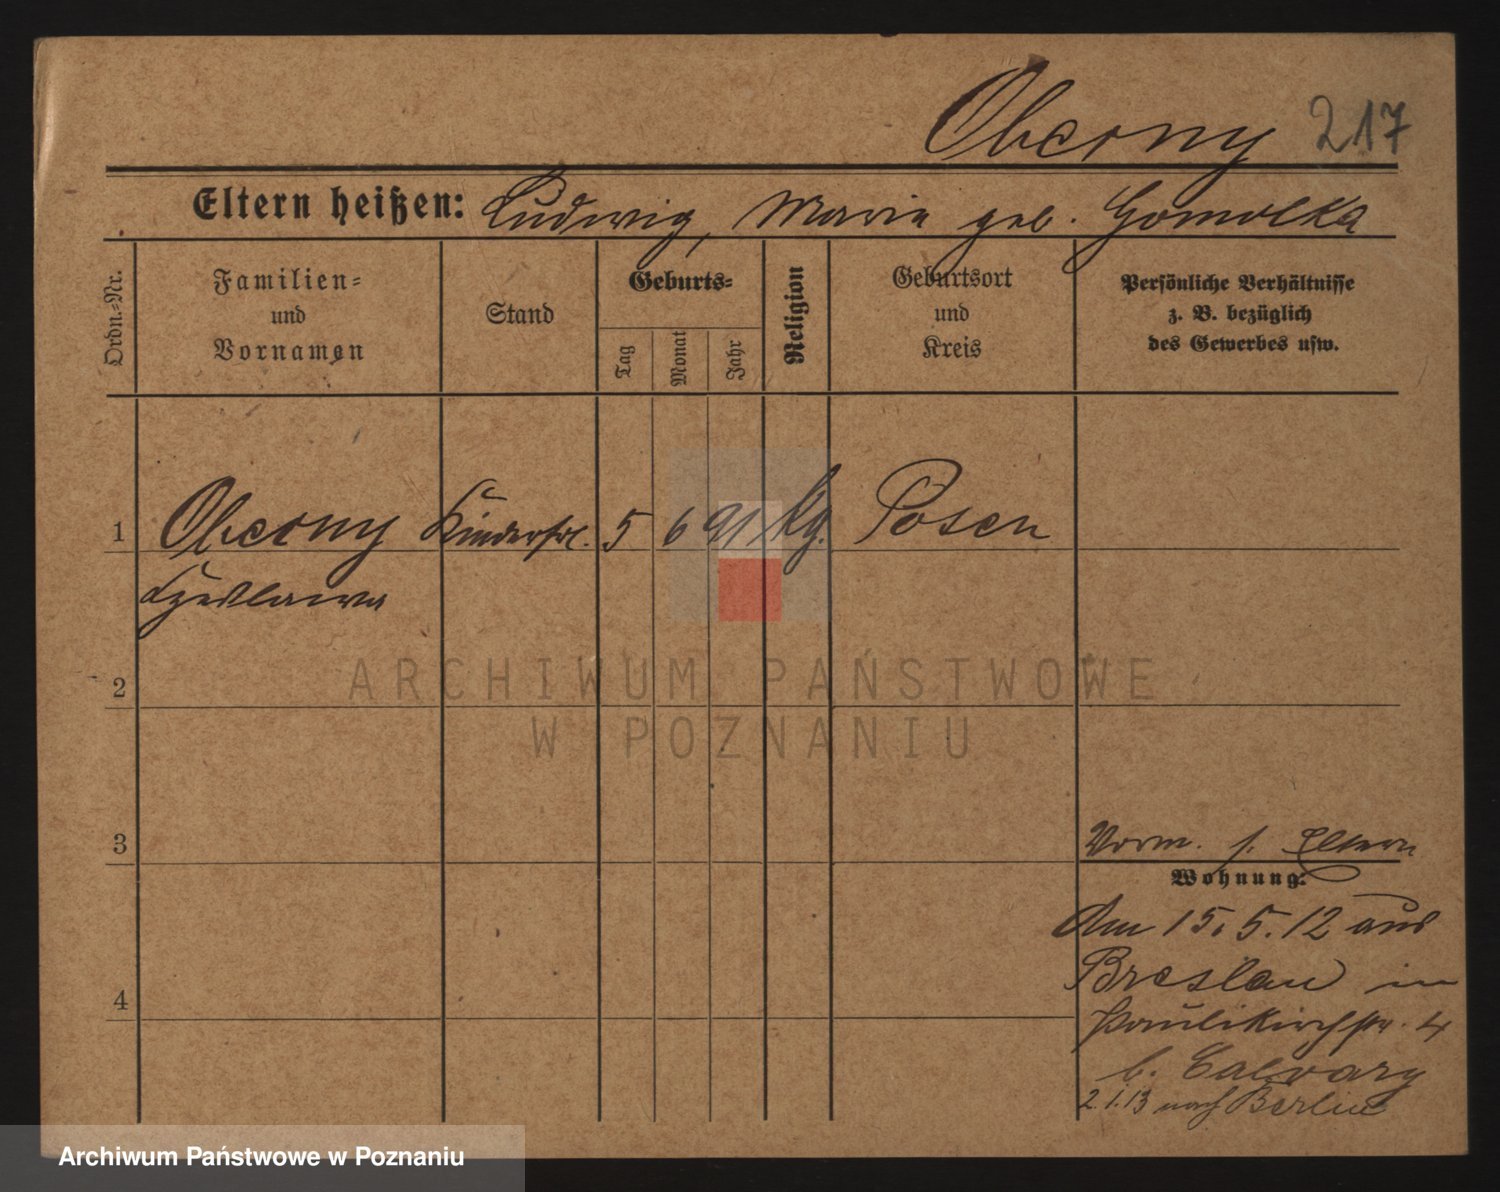 Obecny 217
Eltern heißen: Ludwig, Maria geb. Gomolka
Ordn.-Nr.
Familien-
und
Vornamen
Stand
Geburts-
Tag
Monat
Jahr
Religion
Geburtsort
und
Kreis
Persönliche Verhältnisse
z. B. bezüglich
des Gewerbes usw.
1 Kinderfrl. 5 6 91 Posen
2
ARCHIWUM PAŃSTWOWE
W POZNANIU
3
Vorm. s. Eltern
Wohnung:
4
Am 15.5.12 aus
Breslau in
Paulikirchstr. 4
b. Calvary
2.1.13 nach Berlin
Archiwum Państwowe w Poznaniu